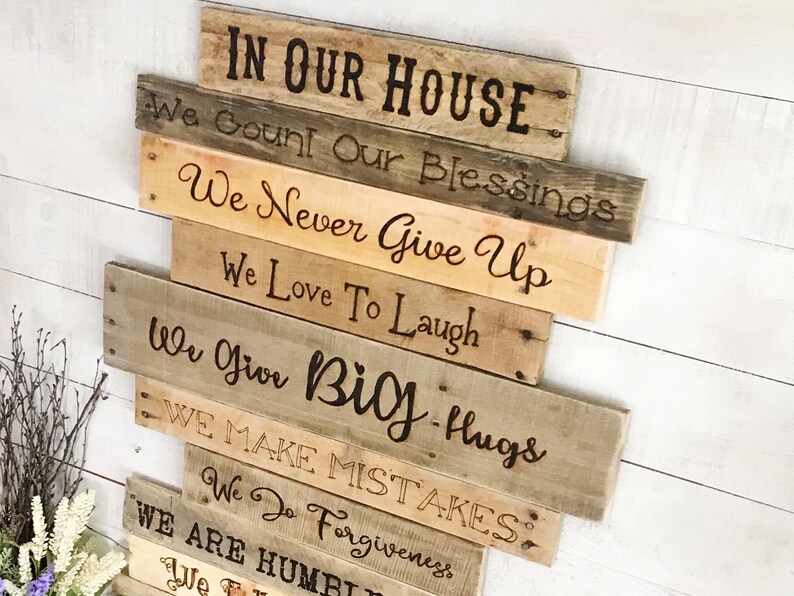 In Our House
We Count Our Blessings
We Never Give Up
We Love To Laugh
We Give BIG Hugs
WE MAKE MISTAKES
We Do Forgiveness
WE ARE HUMBLE
We